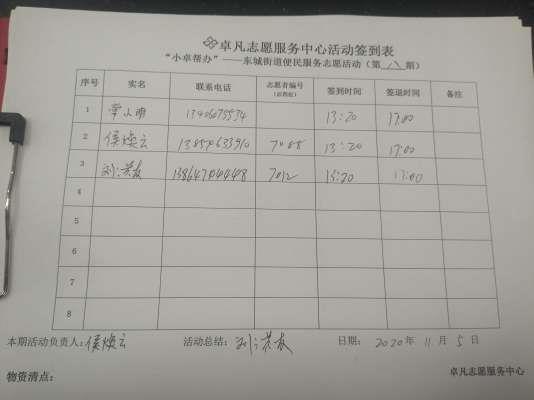 卓凡志愿服务中心活动签到表
“小卓帮办”——东城街道便民服务志愿活动（第 八 期）
序号 实名 联系电话 志愿者编号 签到时间 签退时间 备注
1 常小雨 13:20 17:00
2 侯焕云 7088 13:20 17:00
3 刘洪友 13864704448 7012 13:20 17:00
4
5
6
7
8
本期活动负责人：侯焕云 活动总结：刘洪友 日期： 2020 年 11 月 5 日
物资清点： 卓凡志愿服务中心